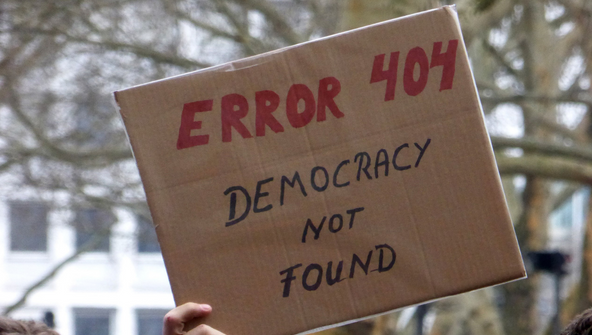 ERROR 404
DEMOCRACY
NOT
FOUND